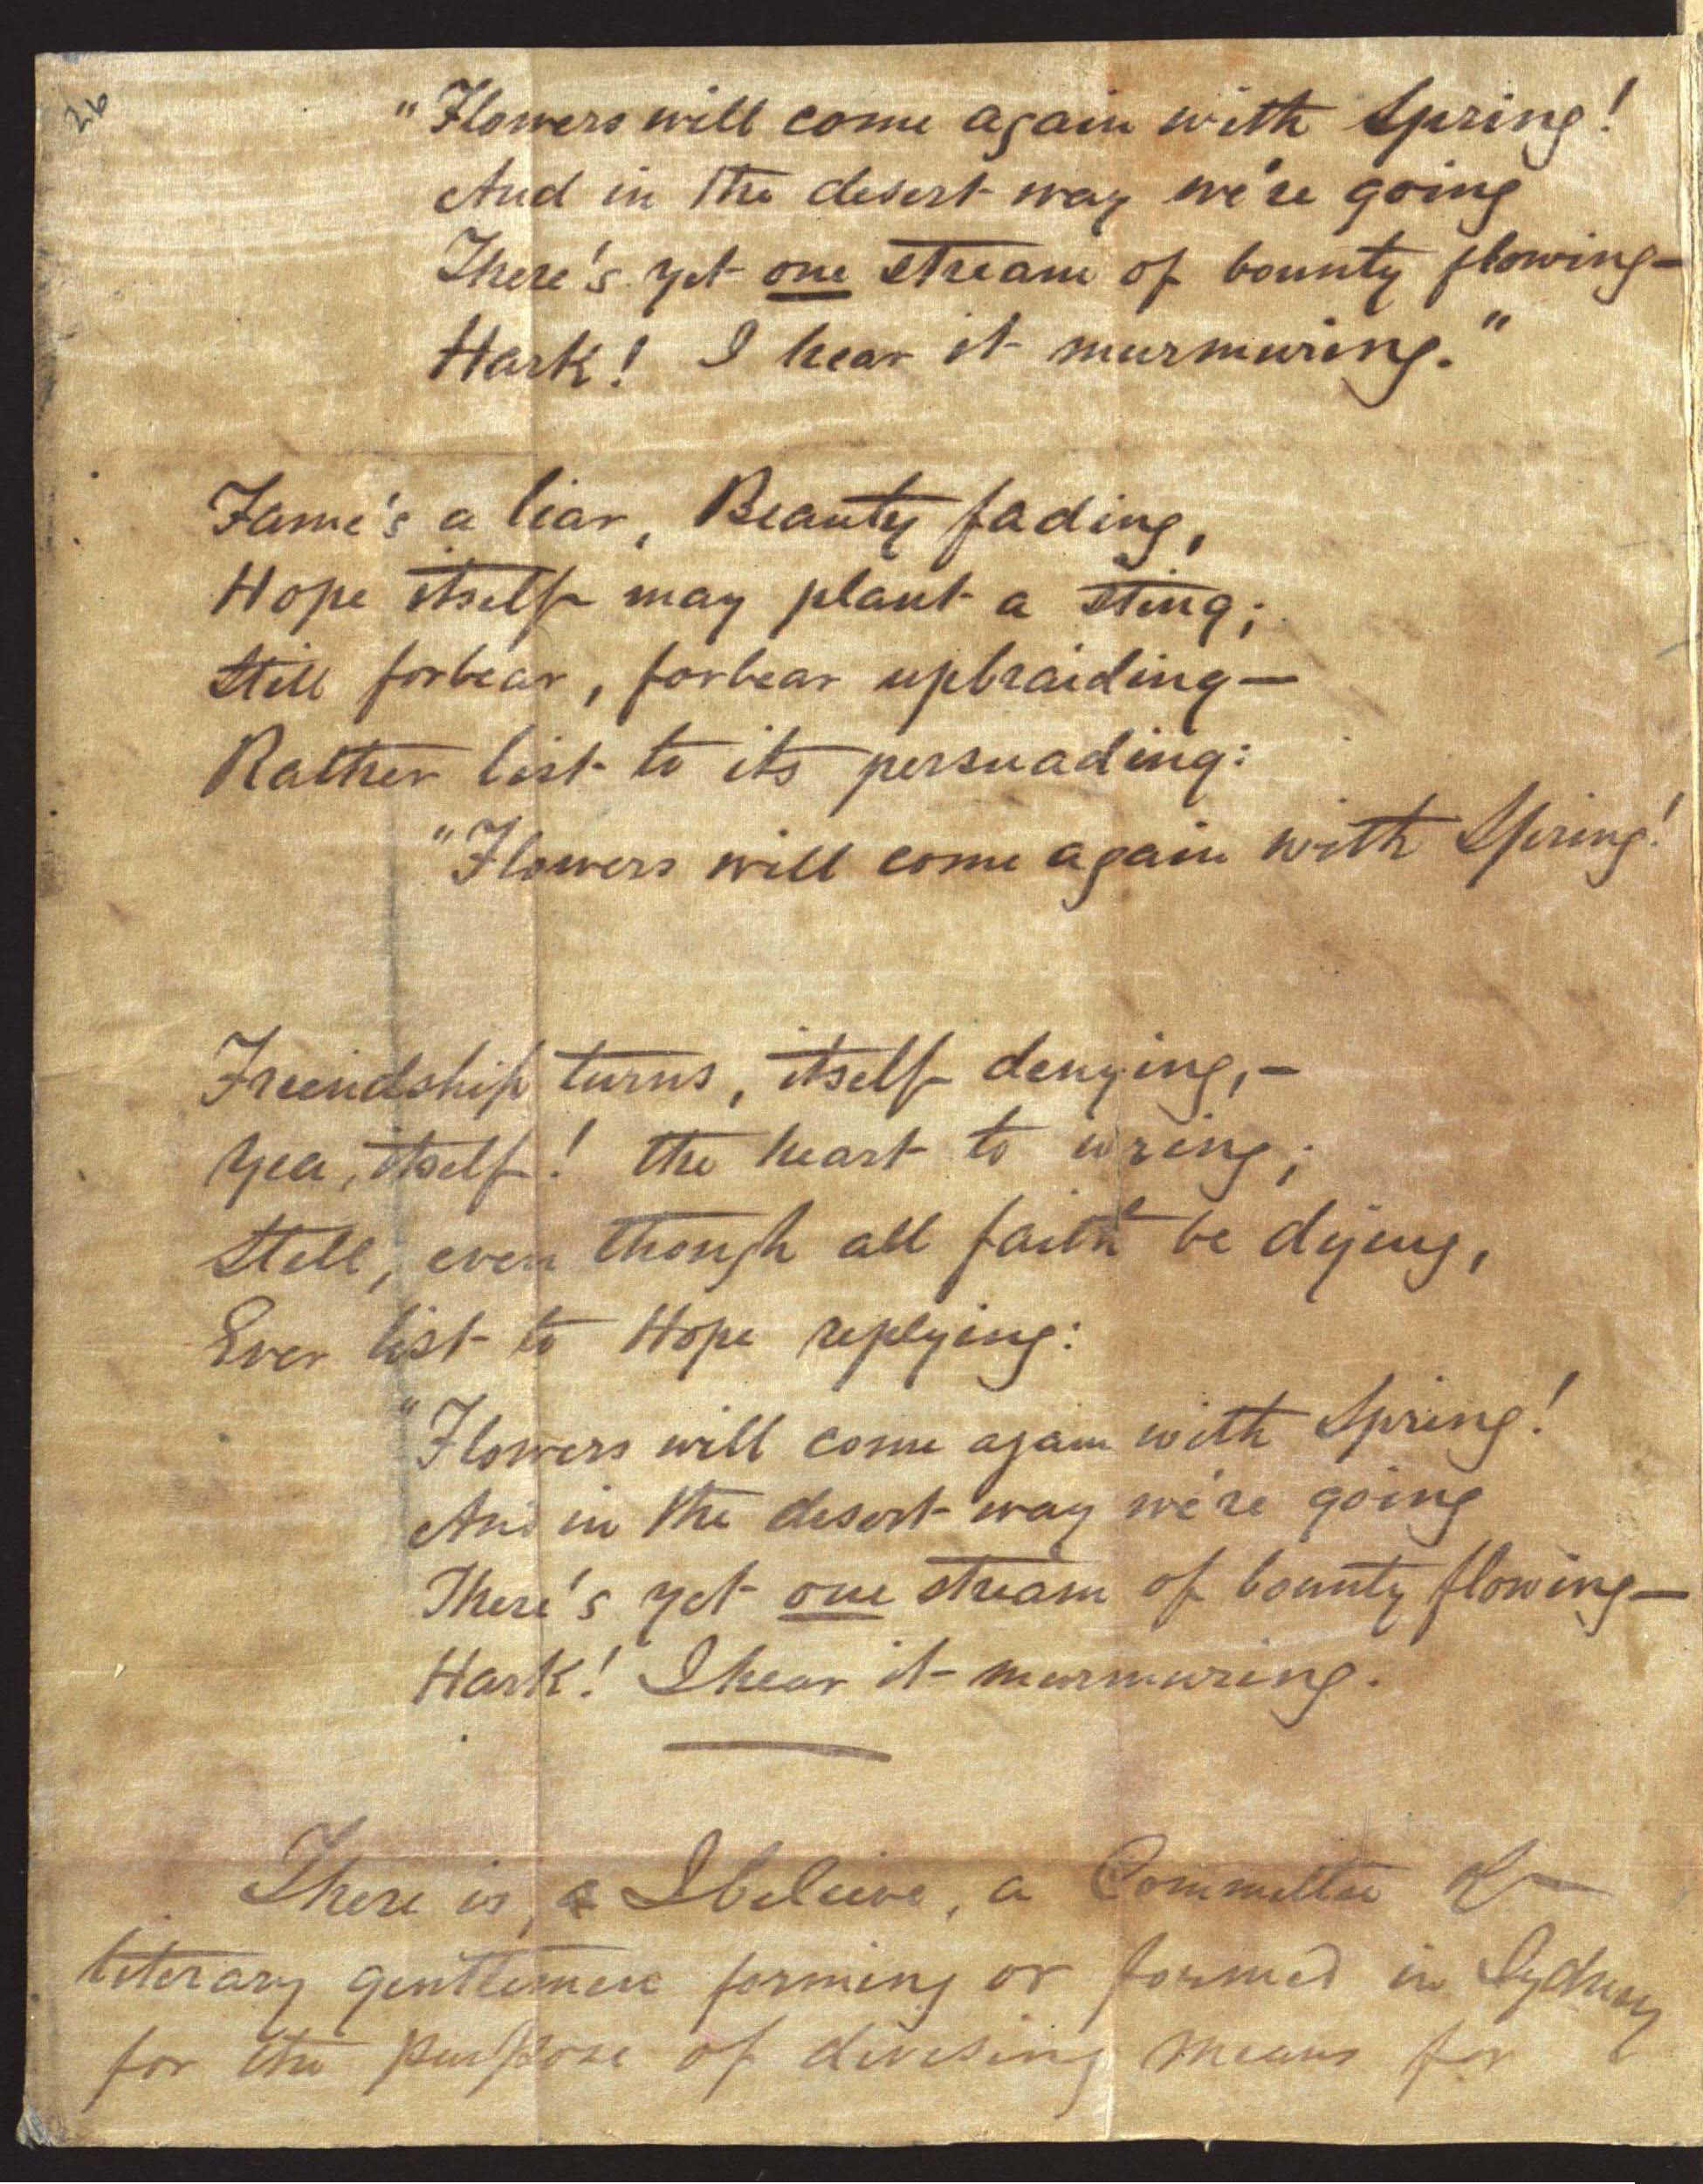 26
"Flowers will come again with Spring!
And in the desert way we're going
There's yet one stream of bounty flowing—
Hark! I hear it murmuring."
Fame's a liar, Beauty fading,
Hope itself may plant a sting;
Still forbear, forbear upbraiding—
Rather list to its persuading:
"Flowers will come again with Spring!
Friendship turns, itself denying,—
Yea, itself! the heart to wring;
Still, even though all faith be dying,
Ever list to Hope replying:
"Flowers will come again with Spring!
And in the desert way we're going
There's yet one stream of bounty flowing—
Hark! I hear it murmuring.
There is, I believe, a Committee of
literary gentlemen forming or formed in Sydney
for the purpose of devising means for